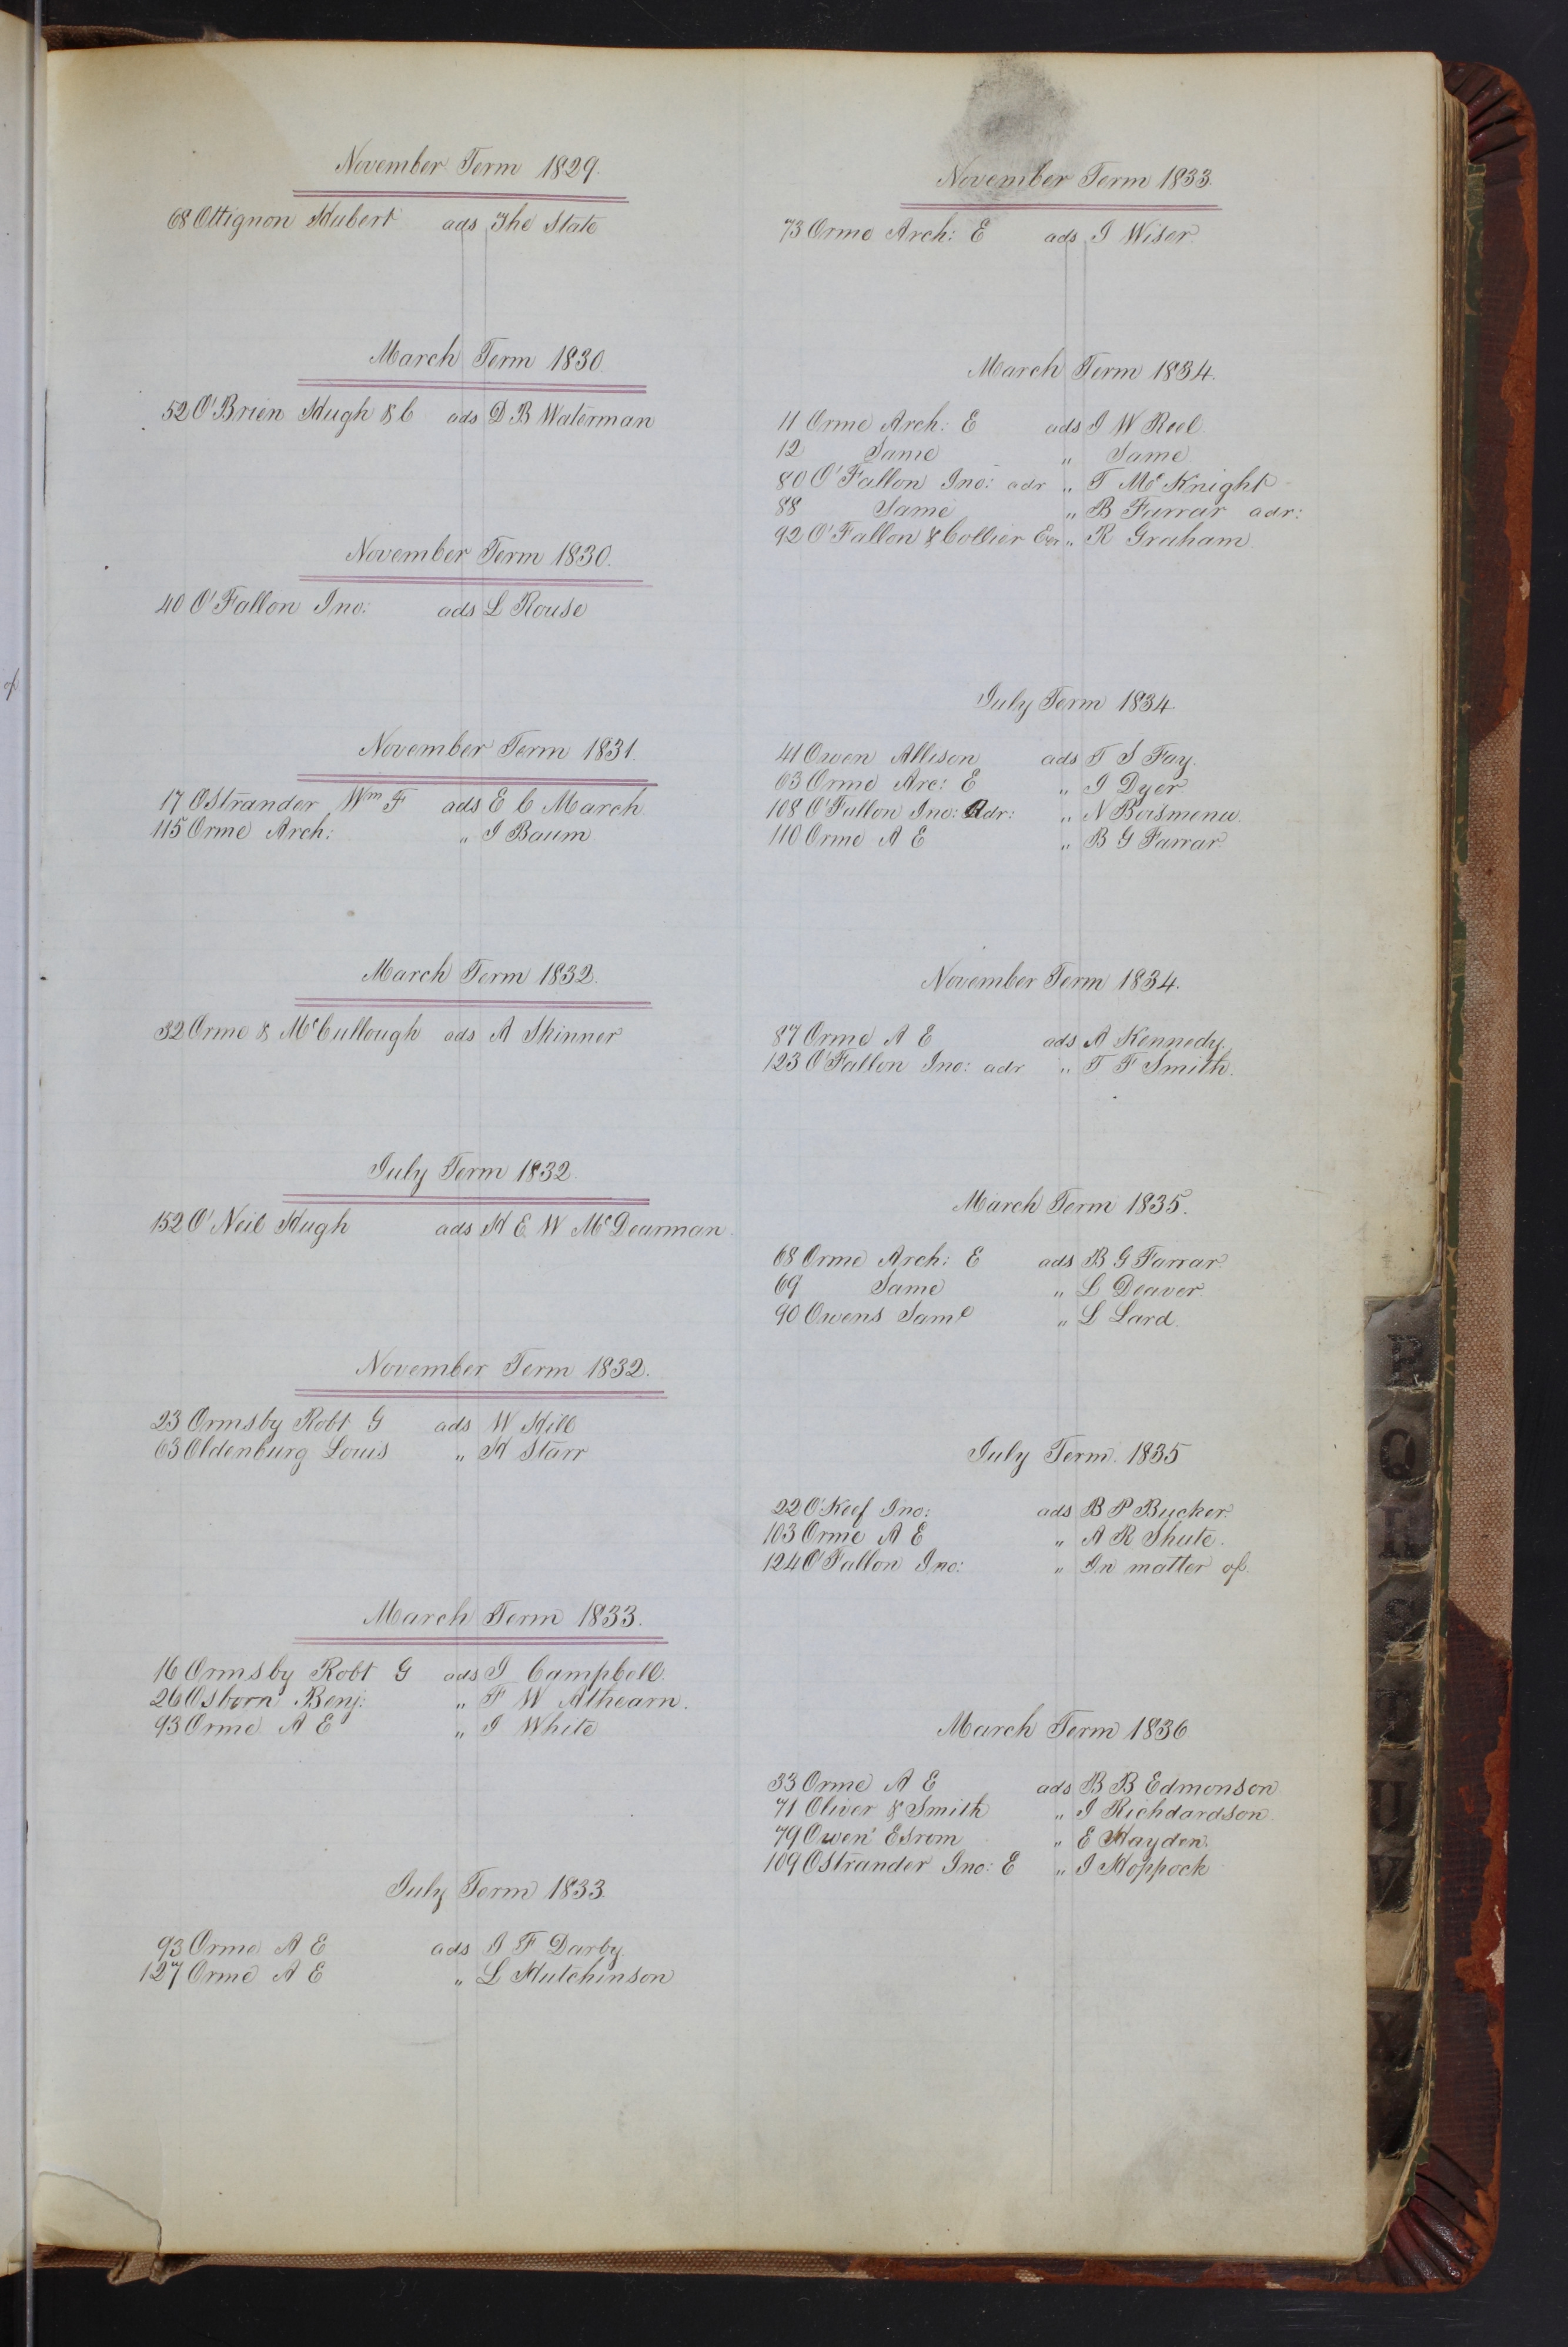 November Term 1829.
68 Ottignon Hubert ads The State
March Term 1830.
52 O'Brien Hugh & C ads D B Waterman
November Term 1830.
40 O'Fallon Jno: ads L Rouse
November Term 1831.
17 OStrander Wm F ads E C March
115 Orme Arch: " J Baum
March Term 1832.
32 Orme & McCullough ads A Skinner
July Term 1832.
152 O'Neil Hugh ads H E W McDearman.
November Term 1832.
23 Ormsby Robt G ads W Hill
63 Oldenburg Louis " H Starr
March Term 1833.
16 Ormsby Robt G ads J Campbell.
26 Osborn Benj: " F W Athearn.
93 Orme A E " J White
July Term 1833.
93 Orme A E ads J F Darby.
127 Orme A E " L Hutchinson
November Term 1833.
73 Orme Arch: E ads J Wiser.
March Term 1834.
11 Orme Arch: E ads J W Reel.
12 Same " Same
80 O'Fallon Jno: adr " T McKnight
88 Same " B Farrar adr:
92 O'Fallon & Collier Exr " R Graham.
July Term 1834
41 Owen Allison ads T S Fay.
63 Orme Arc: E " J Dyer
108 O'Fallon Jno: Adr: " N Boismenu.
110 Orme A E " B G Farrar.
November Term 1834.
87 Orme A E ads A Kennedy.
123 O'Fallon Jno: adr " T F Smith.
March Term 1835.
68 Orme Arch: E ads B G Farrar.
69 Same " L Deaver.
90 Owens Saml " L Lard.
July Term. 1835
22 O'Keef Jno: ads B P Bucker.
103 Orme A E " A R Shute.
124 O'Fallon Jno: " In matter of.
March Term 1836
33 Orme A E ads B B Edmonson
71 Oliver & Smith " J Richdardson.
79 Owen Esrom " E Hayden.
109 OStrander Jno: E " J Hoppock
of
P
Q
R
S
T
U
V